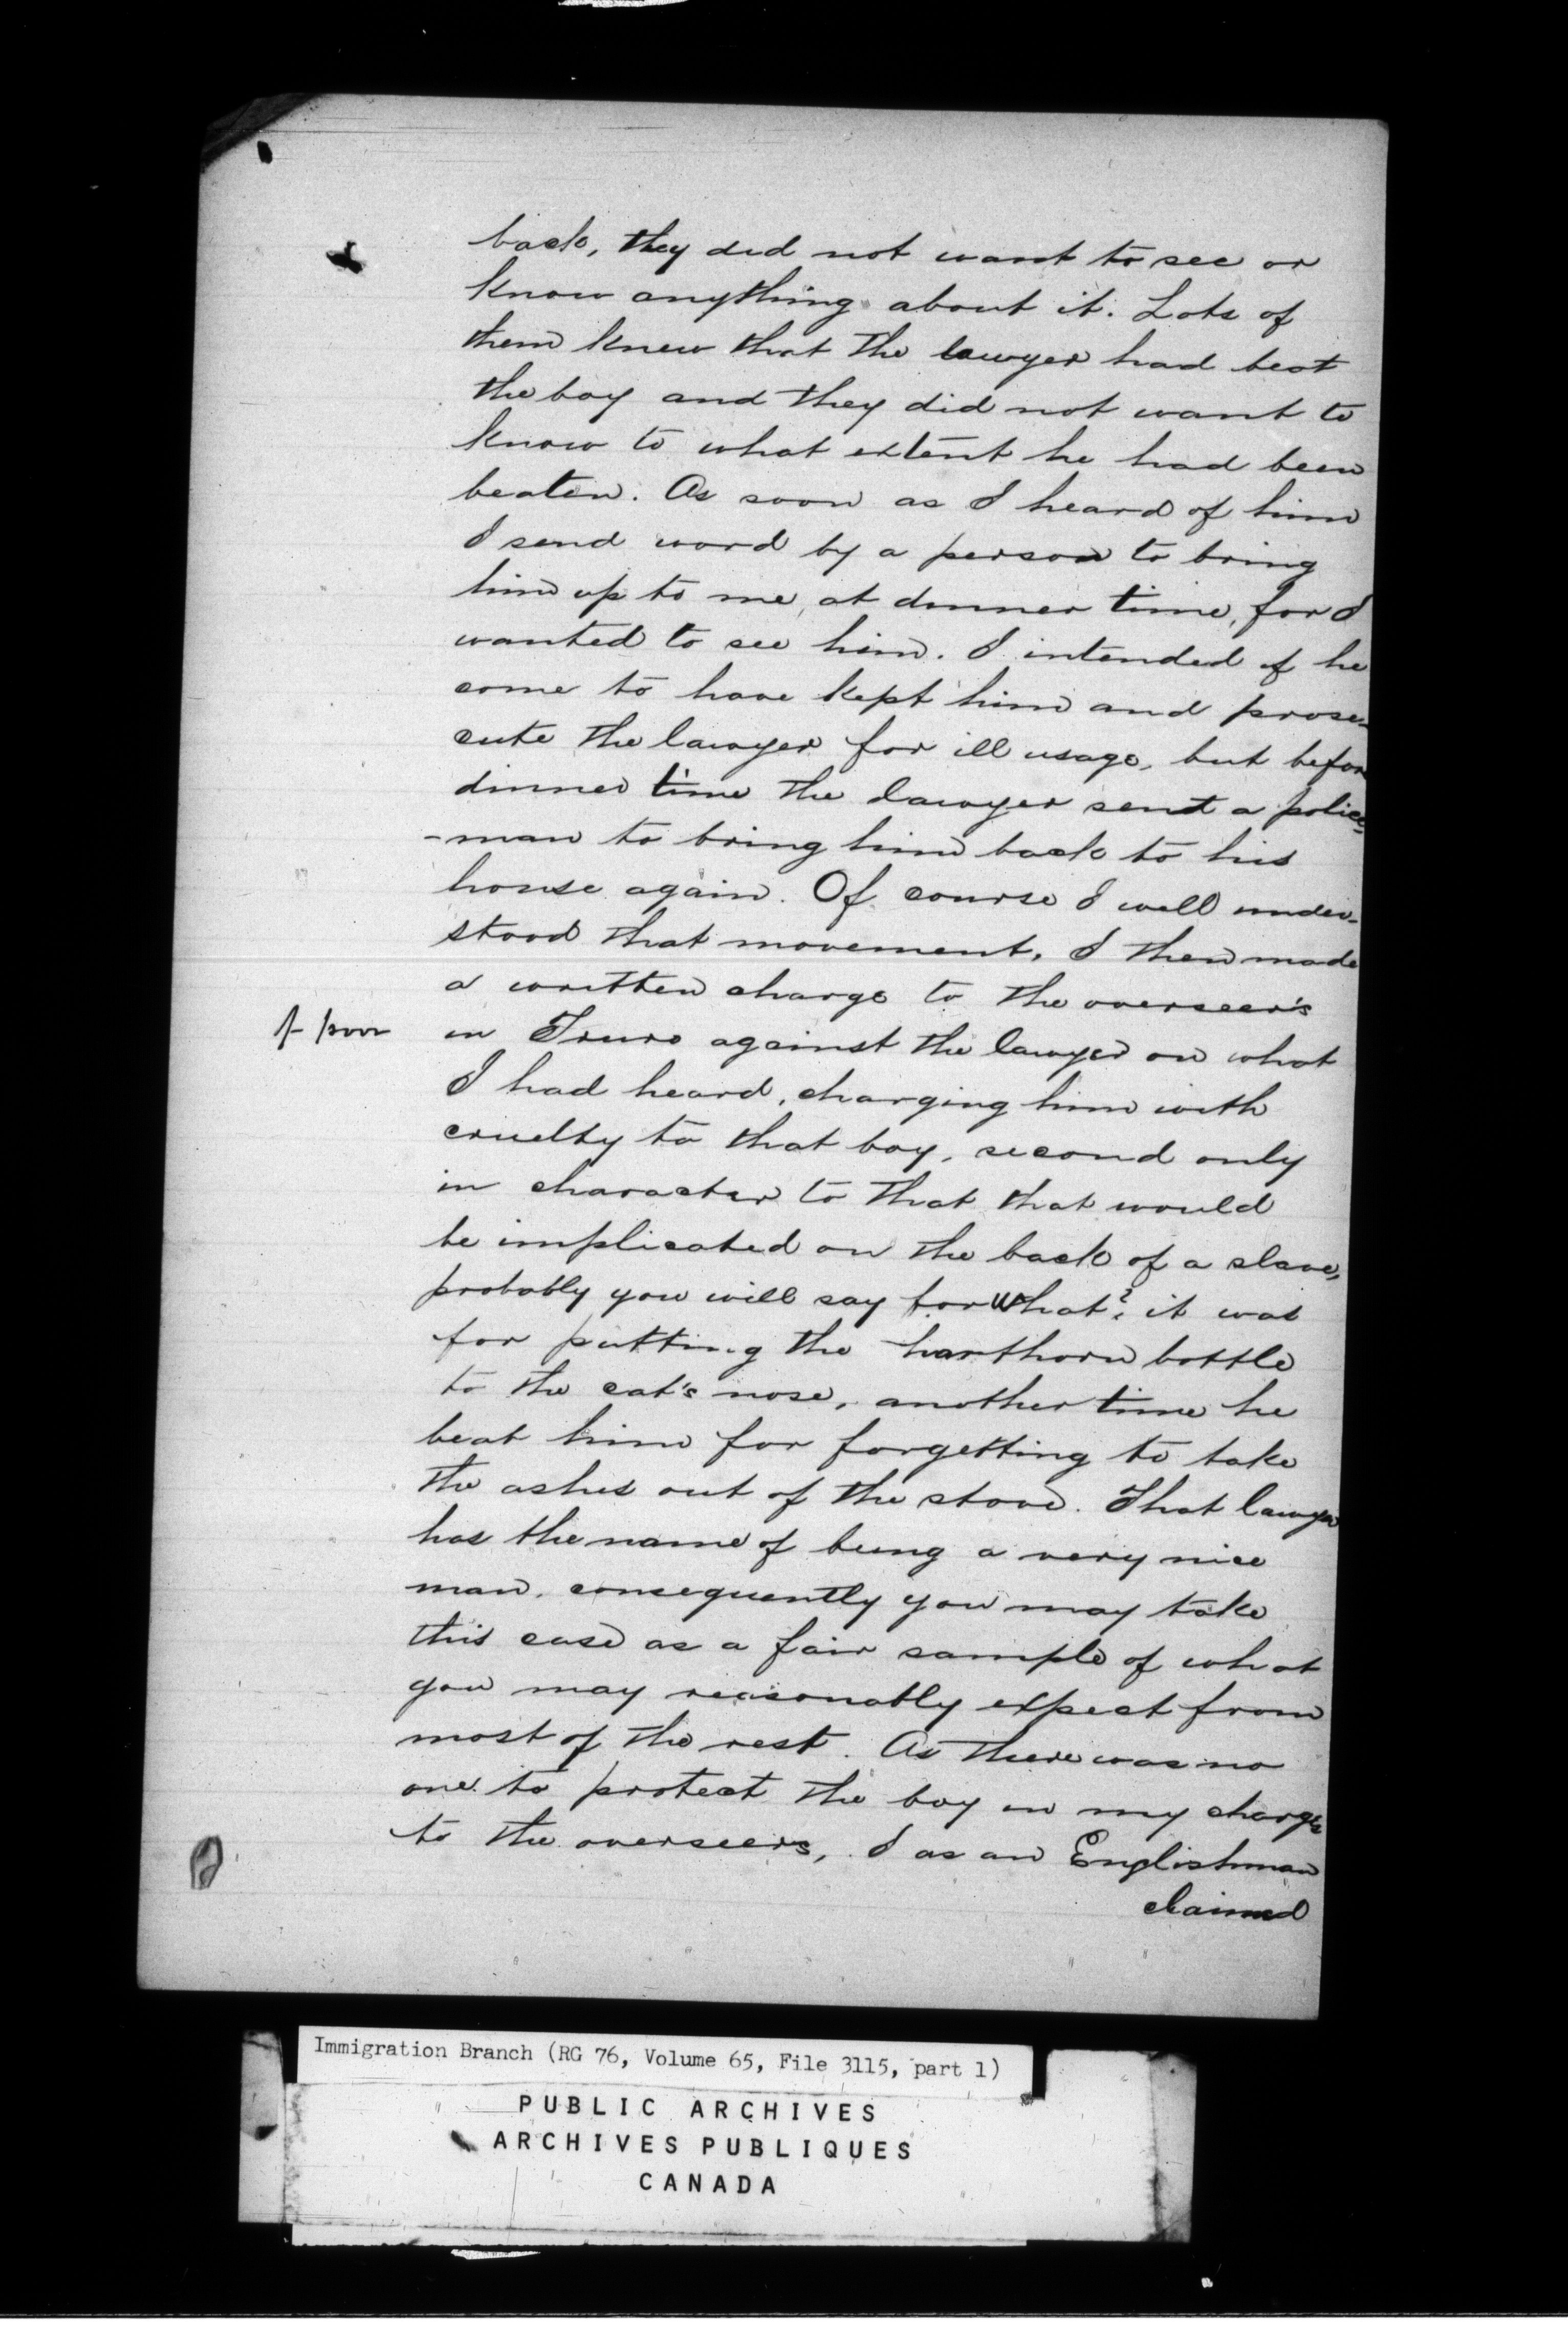 back, they did not want to see or
know anything about it. Lots of
them knew that the lawyer had beat
the boy and they did not want to
know to what extent he had been
beaten. As soon as I heard of him
I send word by a person to bring
him up to me, at dinner time, for I
wanted to see him. I intended if he
come to have kept him and prose-
cute the lawyer for ill usage, but before
dinner time the lawyer sent a police
-man to bring him back to his
house again. Of course I well under-
stood that movement, I then made
a written charge to the overseer's
of poor
in Truro against the lawyer on what
I had heard, charging him with
cruelty to that boy, second only
in character to that that would
be implicated on the back of a slave,
probably you will say for what? it was
for putting the harthorn bottle
to the cat's nose, another time he
beat him for forgetting to take
the ashes out of the stove. That lawyer
has the name of being a very nice
man, consequently you may take
this case as a fair sample of what
you may reasonably expect from
most of the rest. As there was no
one to protect the boy in my charge
to the overseers, I as an Englishman
claimed
Immigration Branch (RG 76, Volume 65, File 3115, part 1)
PUBLIC ARCHIVES
ARCHIVES PUBLIQUES
CANADA